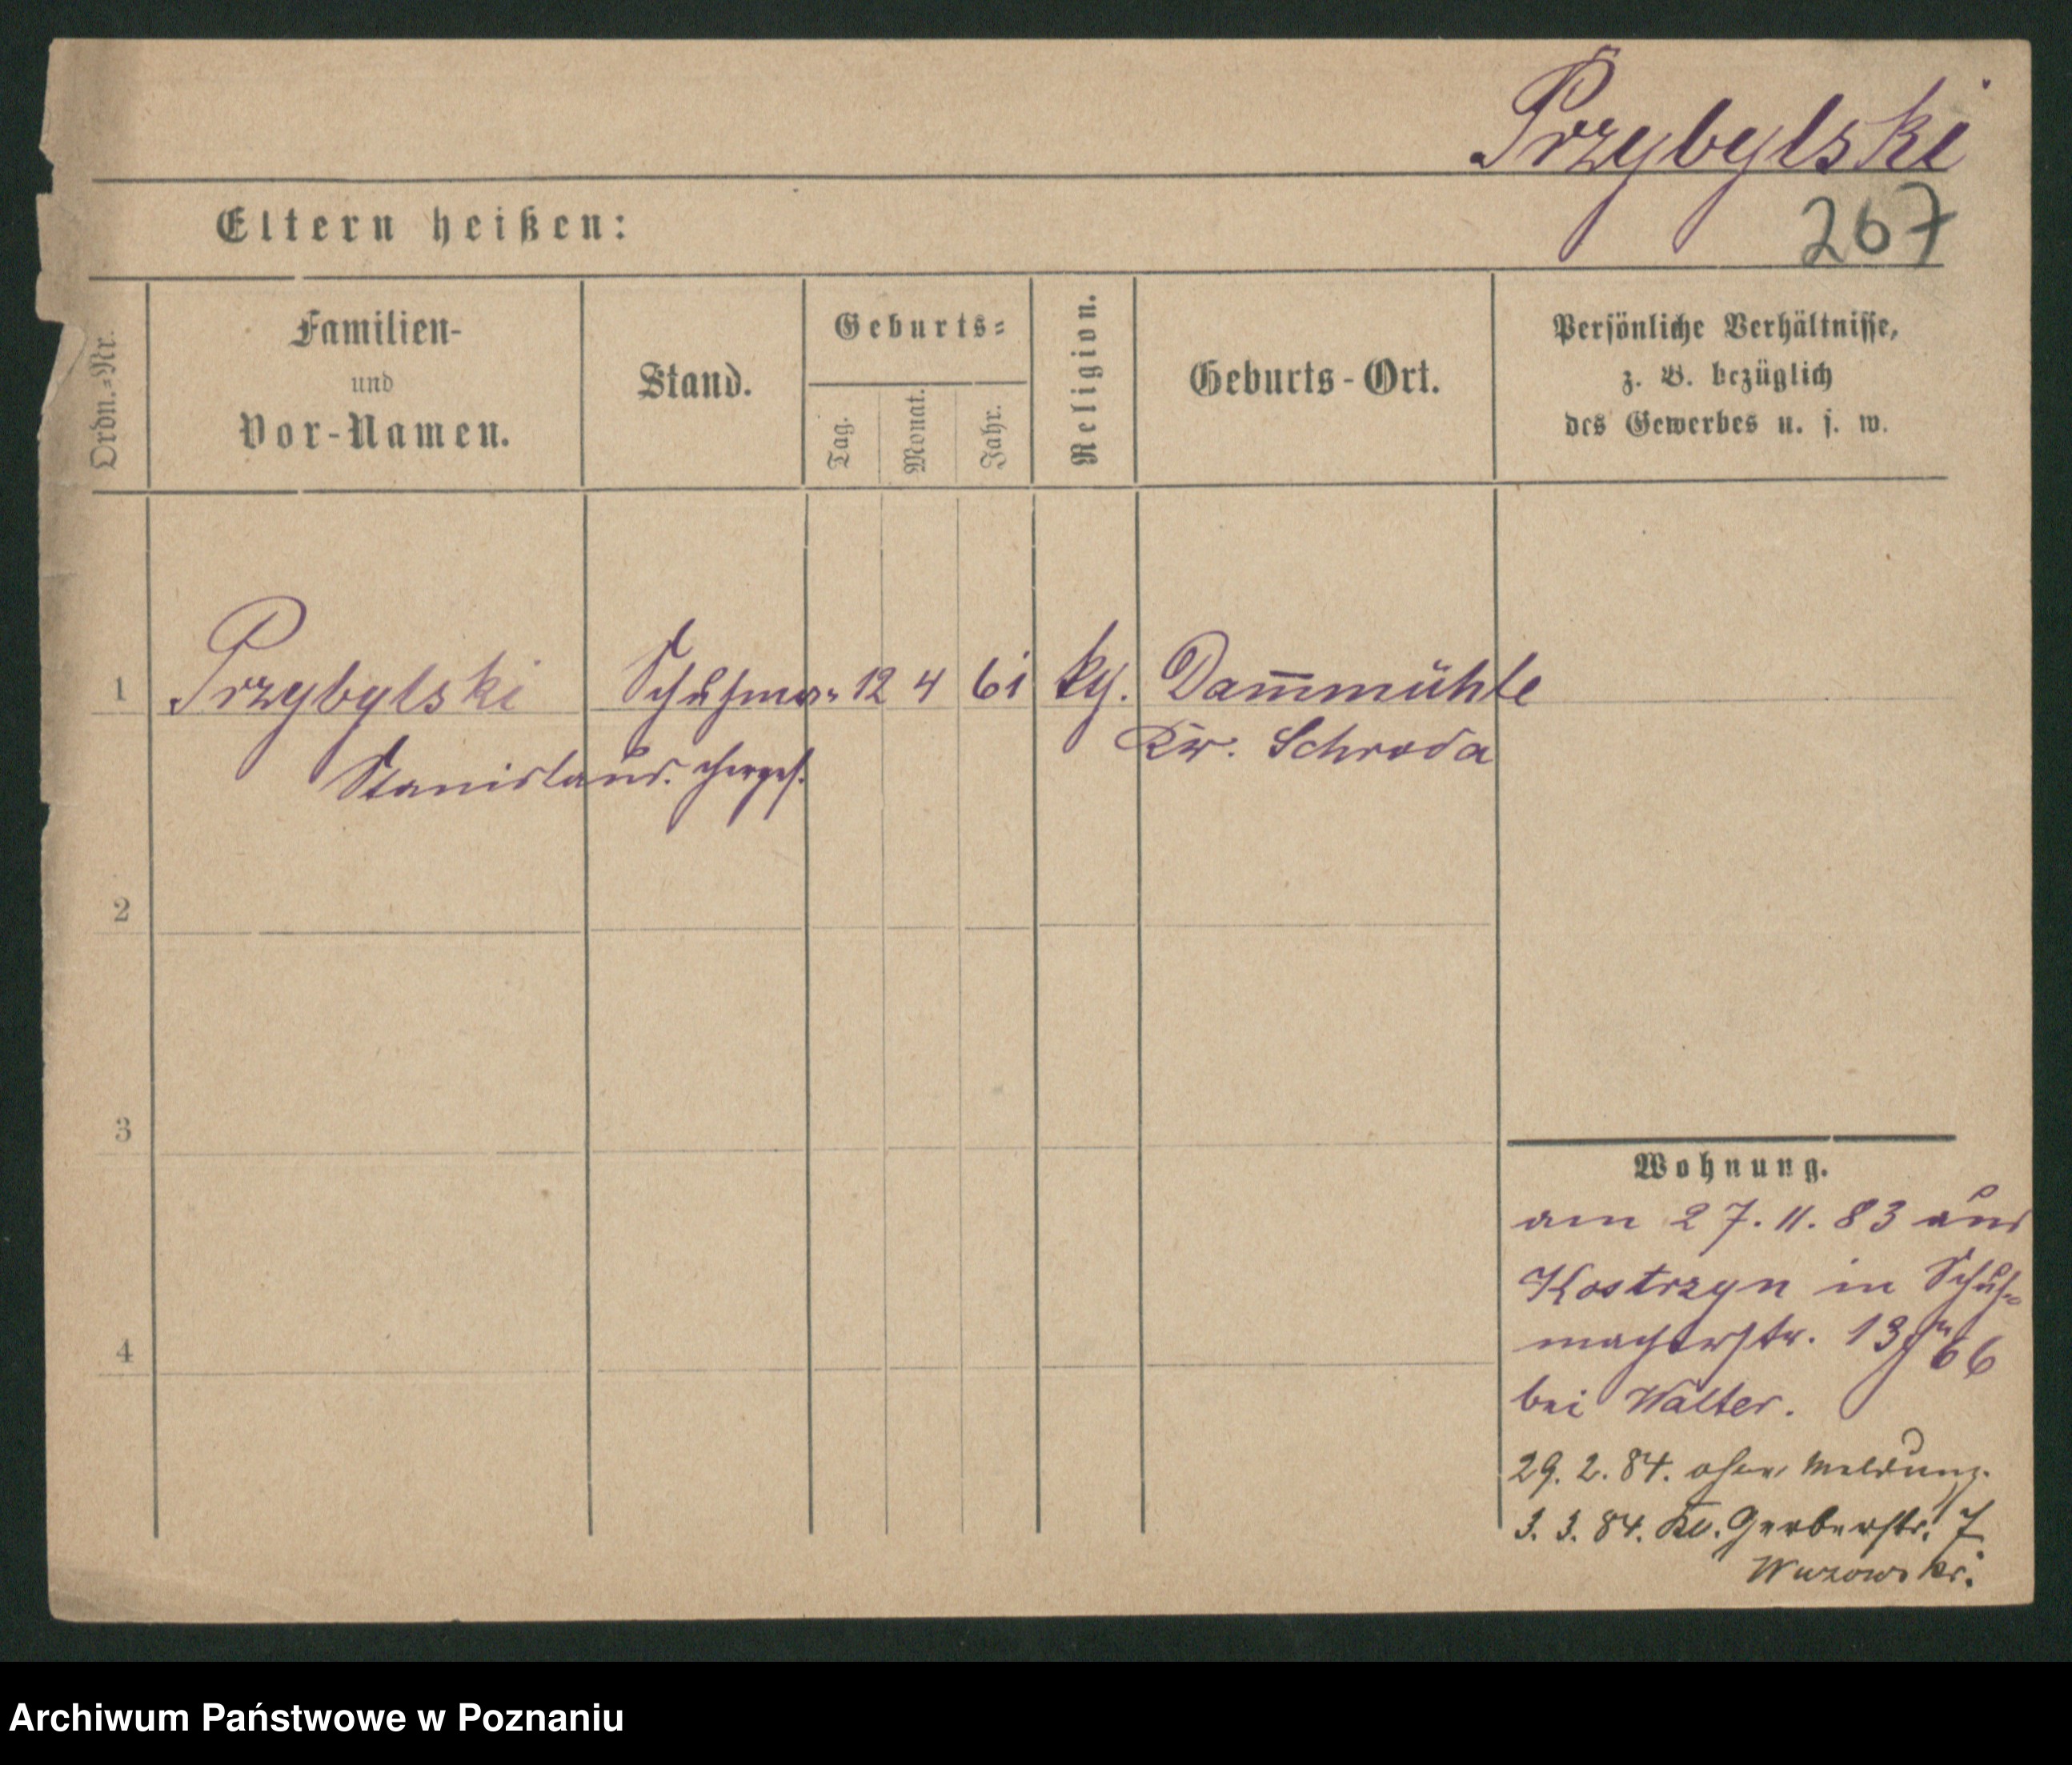 Przybylski
267
Eltern heißen:
Ordn.=Nr.
Familien-
und
Vor-Namen.
Stand.
Geburts=
Tag.
Monat.
Jahr.
Religion.
Geburts-Ort.
Persönliche Verhältnisse,
z. B. bezüglich
des Gewerbes u. s. w.
1 Przybylski Schuhma= 12 4 61 kth. Dam̅mühle
Stanislaus. chergs. Kr. Schroda
2
3
4
Wohnung.
am 27. 11. 83 aus
Kostrzyn in Schuh=
macherstr. 13
bei Walter.
29. 2. 84. ohne Meldung.
3. 3. 84. Kl. Gerberstr. 7
Archiwum Państwowe w Poznaniu